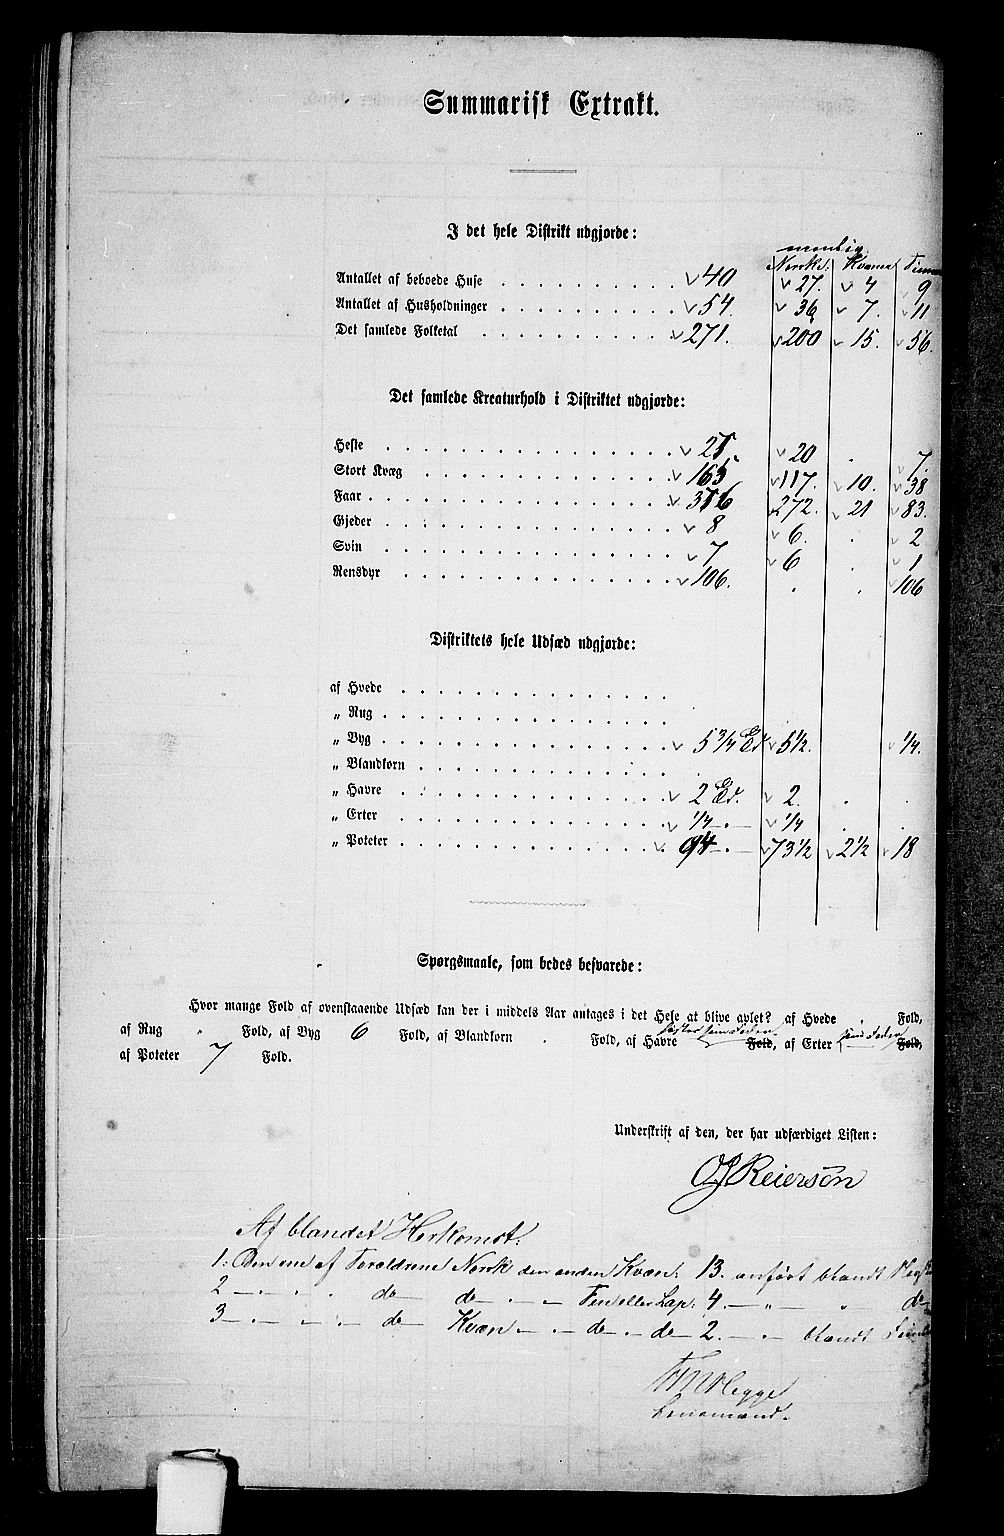 Summarisk Extrakt.
I det hele Distrikt udgjorde:
Norske. Kvæner
Antallet af beboede Huse 40 27. 4 9
Antallet af Husholdninger 54. 36 7. 11
Det samlede Folketal 271. 200 15. 56.
Det samlede Kreaturhold i Distriktet udgjorde:
Heste 20 . 7.
Stort Kvæg 165 117. 10. 38
Faar 272. 21 83.
Gjeder 8 6. . 2
Svin 7 6 . 1
Rensdyr 106. . . 106
Distriktets hele Udsæd udgjorde:
af Hvede
„ Rug
„ Byg 5 3/4 5 1/2. 1/4.
„ Blandkorn
„ Havre 2 2. . .
„ Erter 1/4 1/4 . .
„ Poteter 94 73 1/2 2 1/2 18
Spørgsmaale, som bedes besvarede:
Hvor mange Fold af ovenstaaende Udsæd kan der i middels Aar antages i det Hele at blive avlet? af Hvede „ Fold,
af Rug „ Fold, af Byg 6 Fold, af Blandkorn . Fold, af Havre Fold, af Erter Fold,
af Poteter 7 Fold.
Underskrift af den, der har udfærdiget Listen:
OJReierson
Af blandet Herkomst:
1: Den ene af Forældrene Norsk den anden Kvæn: 13. anført blandt
2 — . . . do — do — . — — Fin eller Lap: 4. — „ — „ do
3 — . — . — . — do — Kvæn — . — do — . — do — 2. — . — blandt
Hegge
Lensmand.